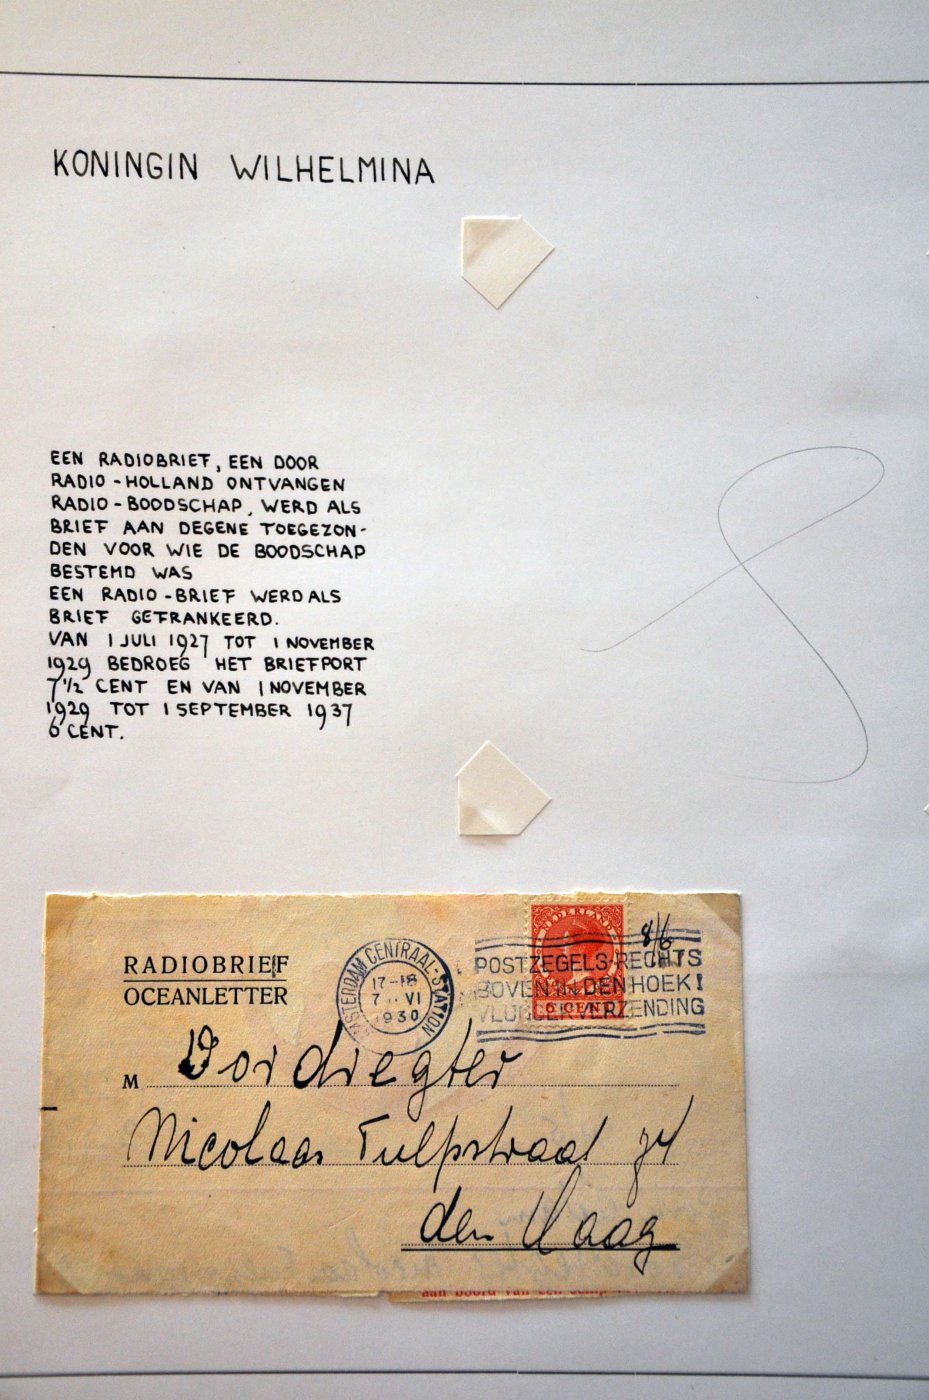 KONINGIN WILHELMINA
EEN RADIOBRIEF, EEN DOOR
RADIO-HOLLAND ONTVANGEN
RADIO-BOODSCHAP, WERD ALS
BRIEF AAN DEGENE TOEGEZON-
DEN VOOR WIE DE BOODSCHAP
BESTEMD WAS
EEN RADIO-BRIEF WERD ALS
BRIEF GEFRANKEERD.
VAN 1 JULI 1927 TOT 1 NOVEMBER
1929 BEDROEG HET BRIEFPORT
7 1/2 CENT EN VAN 1 NOVEMBER
1929 TOT 1 SEPTEMBER 1937
6 CENT.
RADIOBRIEF
OCEANLETTER
AMSTERDAM CENTRAAL-STATION
17-18
7 VI
1930
NEDERLAND
6 CENT
8/6
POSTZEGELS-RECHTS
BOVEN IN DEN HOEK!
VLUGGER VERZENDING
M
Nicolaas Tulpstraat
den Haag
aan boord van een